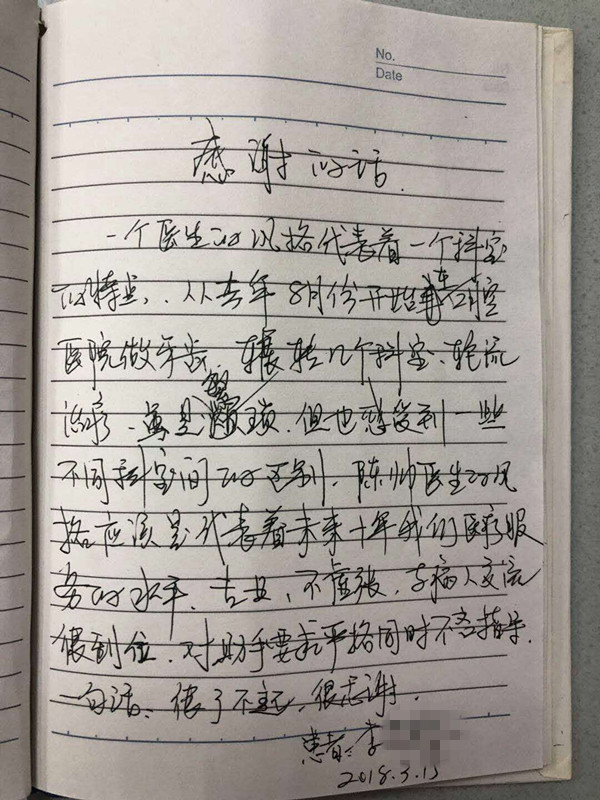 No.
Date
感谢的话.
一个医生的风格代表着一个科室
的特点,从去年8月份开始
医院做牙齿,辗转几个科室、轮流
治疗.虽是繁琐.但也感受到一些
不同科室间的区别.陈帅医生的风
格应该是代表着未来十年我们医疗服
务的水平.专业,不嚣张,与病人交流
很到位.对助手要求严格同时不吝指导.
一句话、很了不起,很感谢.
患者:李
2018.3.15